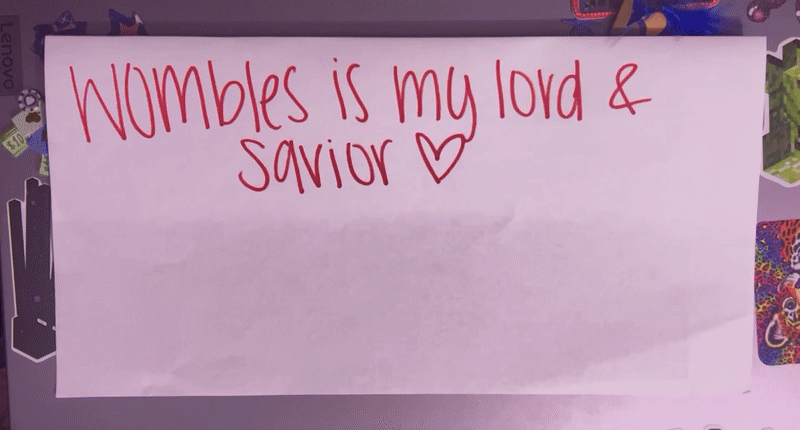 Wombles is my lord &
savior ♡
Lenovo
$10